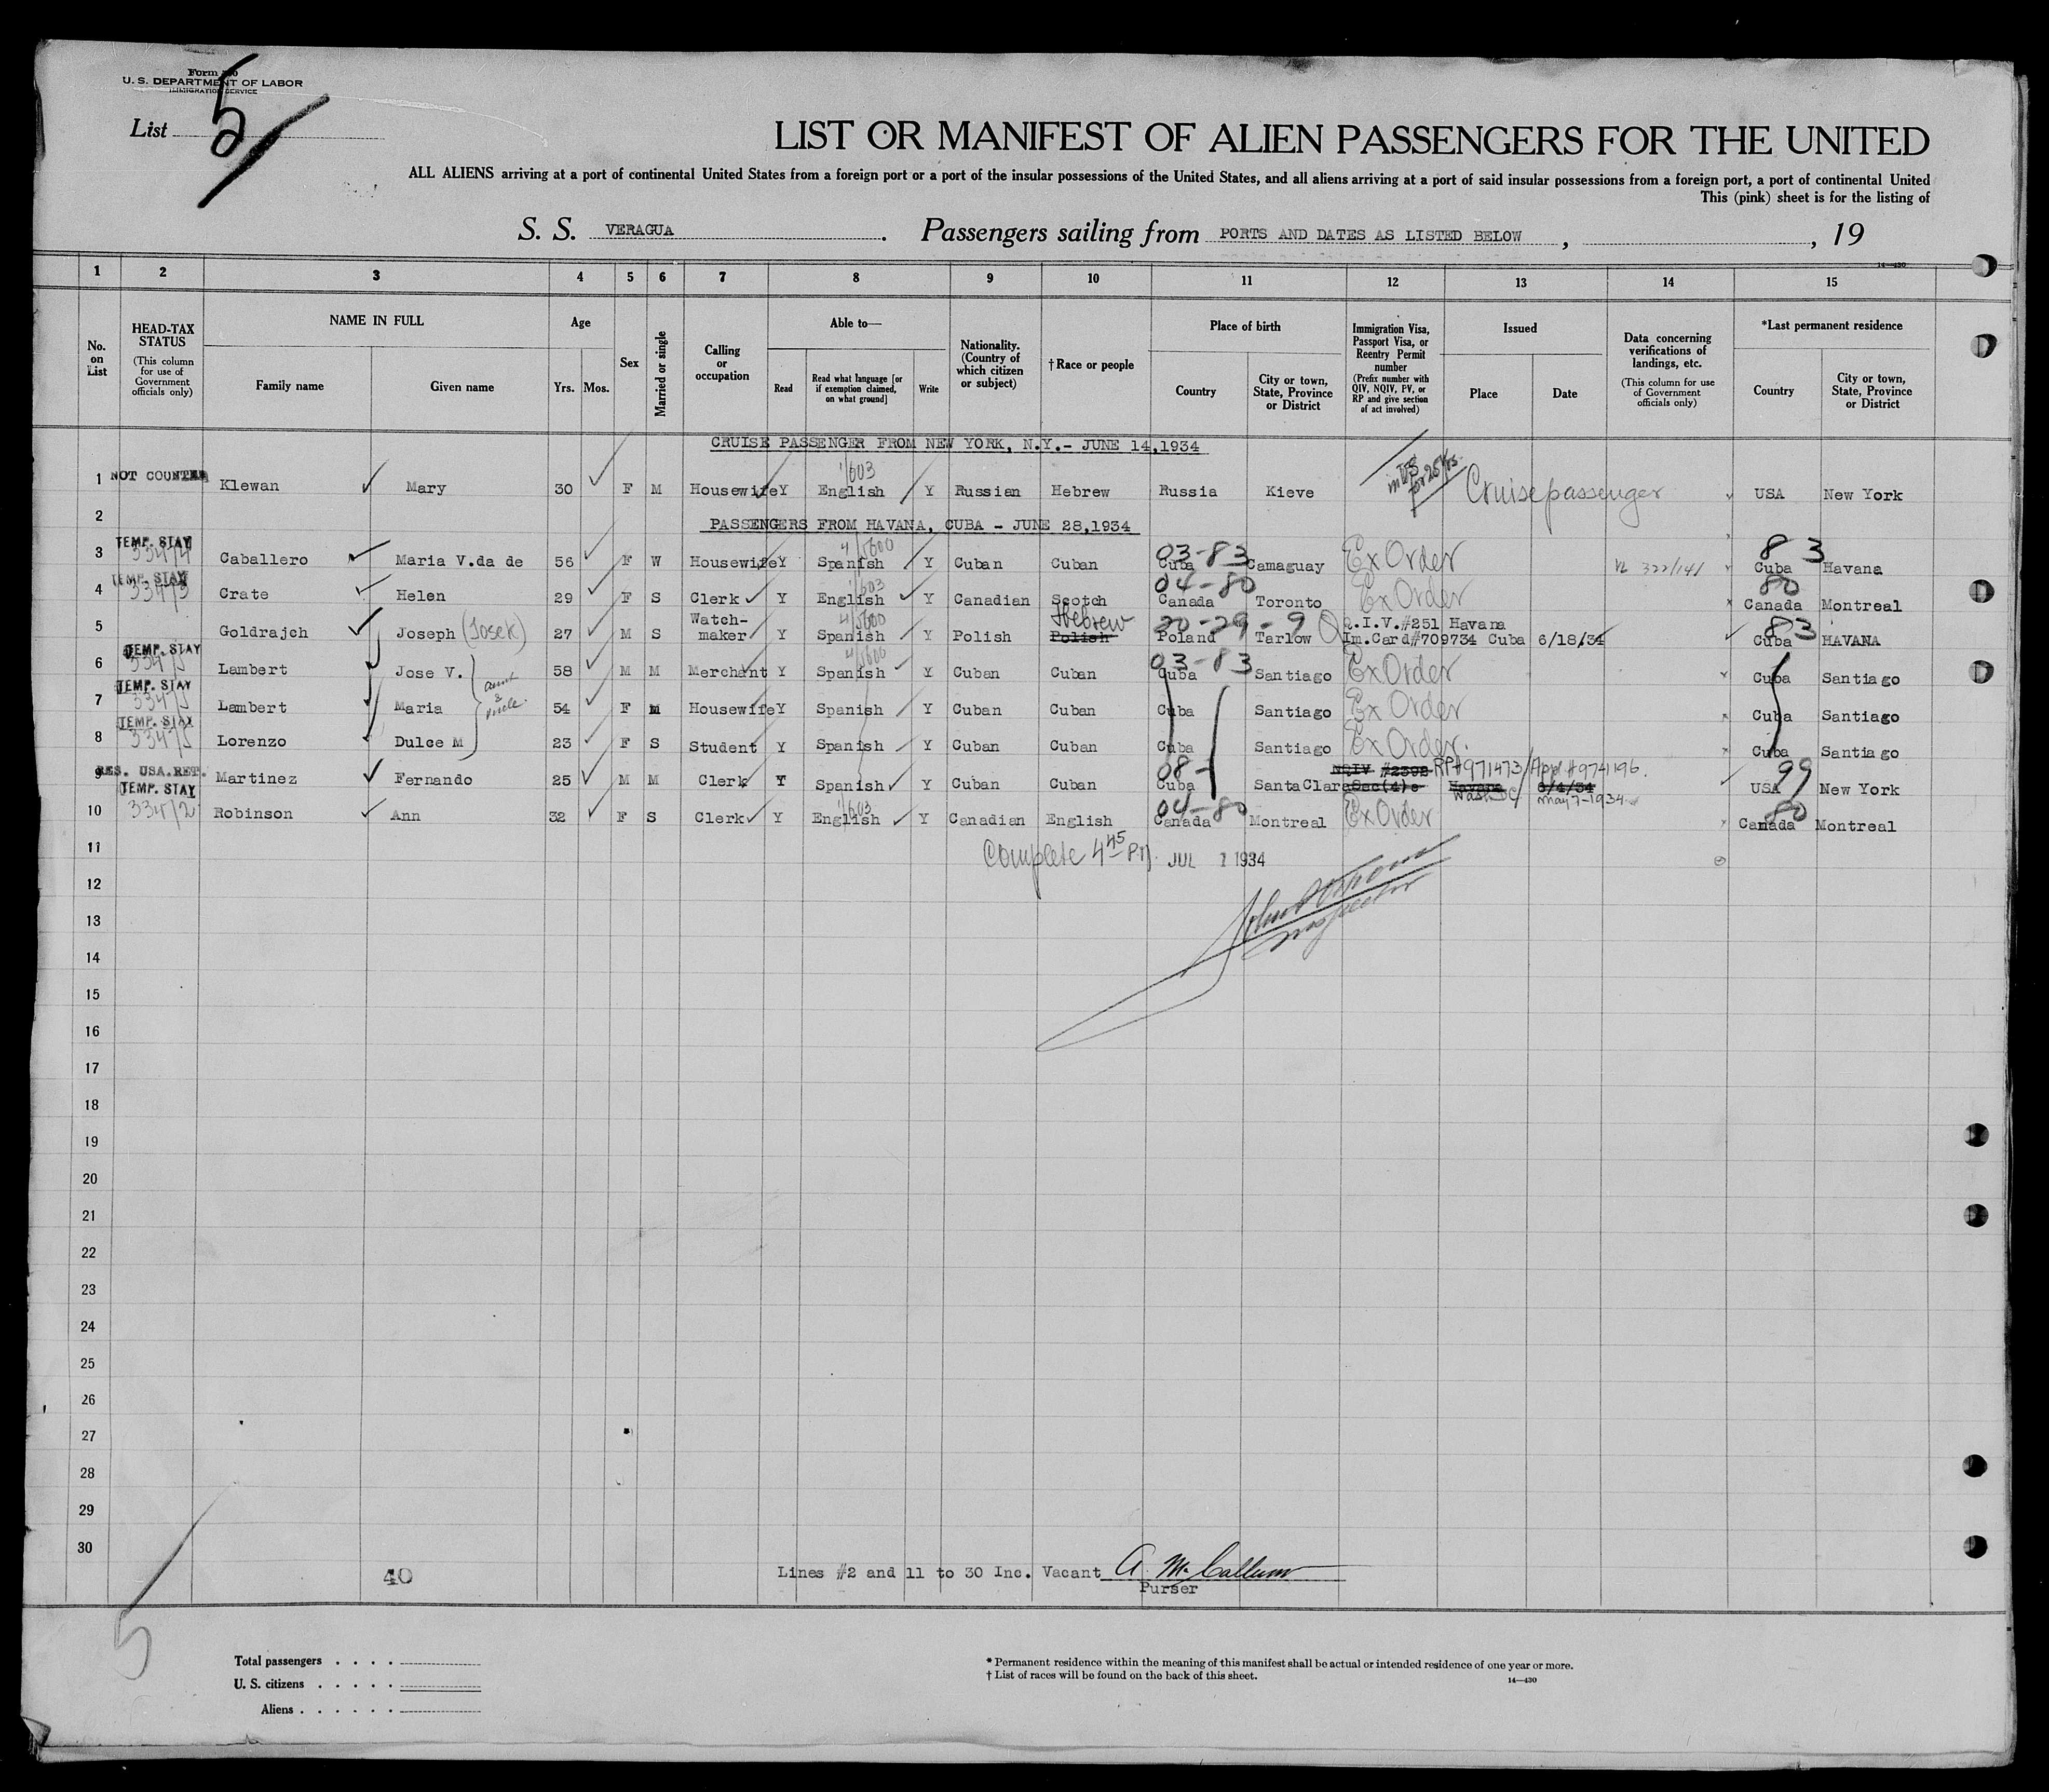 Form
U. S. DEPARTMENT OF LABOR
IMMIGRATION SERVICE
List 5
LIST OR MANIFEST OF ALIEN PASSENGERS FOR THE UNITED
ALL ALIENS arriving at a port of continental United States from a foreign port or a port of the insular possessions of the United States, and all aliens arriving at a port of said insular possessions from a foreign port, a port of continental United
This (pink) sheet is for the listing of
S. S. VERAGUA. Passengers sailing from PORTS AND DATES AS LISTED BELOW, , 19
14—430
1 2 3 4 5 6 7 8 9 10 11 12 13 14 15
No. on List
HEAD-TAX STATUS (This column for use of Government officials only)
NAME IN FULL Family name Given name
Age Yrs. Mos.
Sex
Married or single
Calling or occupation
Able to— Read Read what language [or if exemption claimed, on what ground] Write
Nationality. (Country of which citizen or subject)
†Race or people
Place of birth Country City or town, State, Province or District
Immigration Visa, Passport Visa, or Reentry Permit number (Prefix number with QIV, NQIV, PV, or RP and give section of act involved)
Issued Place Date
Data concerning verifications of landings, etc. (This column for use of Government officials only)
*Last permanent residence Country City or town, State, Province or District
CRUISE PASSENGER FROM NEW YORK, N.Y.- JUNE 14,1934
1/603
in US for 25 yrs
1 NOT COUNTED Klewan Mary 30 F M Housewife Y English Y Russian Hebrew Russia Kieve Cruise passenger USA New York
2 PASSENGERS FROM HAVANA, CUBA - JUNE 28,1934
TEMP. STAY 4/5600 03-83 83
3 334/4 Caballero Maria V.da de 56 F W Housewife Y Spanish Y Cuban Cuban Cuba Camaguay Ex Order 322/141 Cuba Havana
TEMP. STAY 1/603 04-80 80
4 334/3 Crate Helen 29 F S Clerk Y English Y Canadian Scotch Canada Toronto Ex Order Canada Montreal
Watch- 4/5600 Hebrew 20-29-9 Q.I.V.#251 Havana 83
5 Goldrajch Joseph (Josek) 27 M S maker Y Spanish Y Polish Polish Poland Tarlow Im.Card#709734 Cuba 6/18/34 Cuba HAVANA
TEMP. STAY 4/5600 03-83
6 334/5 Lambert Jose V. 58 M M Merchant Y Spanish Y Cuban Cuban Cuba Santiago Ex Order Cuba Santiago
TEMP. STAY aunt & uncle
7 334/5 Lambert Maria 54 F M Housewife Y Spanish Y Cuban Cuban Cuba Santiago Ex Order Cuba Santiago
TEMP. STAY
8 334/5 Lorenzo Dulce M 23 F S Student Y Spanish Y Cuban Cuban Cuba Santiago Ex Order. Cuba Santiago
RES. USA.RET. 08- NQIV #2392 RP#971473 App #9741196. 99
9 Martinez Fernando 25 M M Clerk Y Spanish Y Cuban Cuban Cuba Santa Clara Sec(4)e Havana 5/4/34 USA New York
Wash DC May 7-1934
TEMP. STAY 1/603 04-80 80
10 334/2 Robinson Ann 32 F S Clerk Y English Y Canadian English Canada Montreal Ex Order Canada Montreal
11 Complete 4 45 PM. JUL 1 1934
12
13
Inspector
14
15
16
17
18
19
20
21
22
23
24
25
26
27
28
29
30
40
Lines #2 and 11 to 30 Inc. Vacant A. McCallum
Purser
5
Total passengers . . . .
U. S. citizens . . . . .
Aliens . . . . . .
* Permanent residence within the meaning of this manifest shall be actual or intended residence of one year or more.
† List of races will be found on the back of this sheet.
14—430